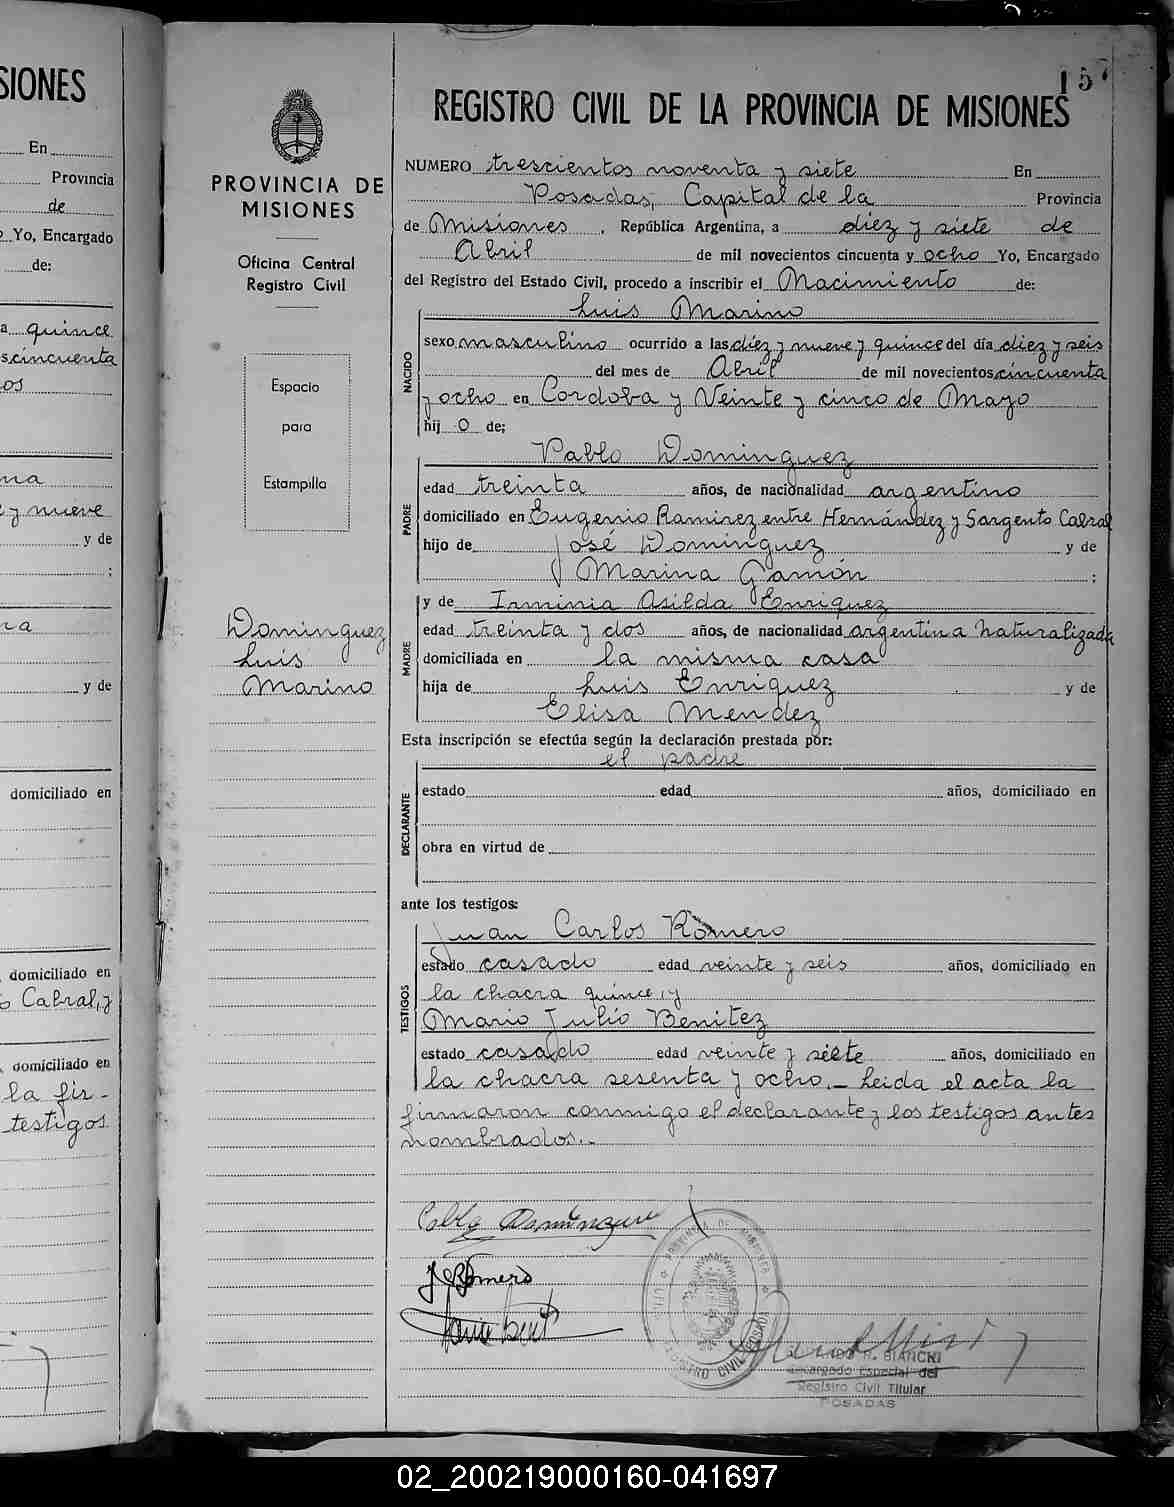 SIONES
En
Provincia
de
Yo, Encargado
de:
a quince
s cincuenta
os
na
y nueve
y de
;
ra
y de
domiciliado en
domiciliado en
o Cabral, y
domiciliado en
la fir-
testigos
PROVINCIA DE
MISIONES
Oficina Central
Registro Civil
Espacio
para
Estampilla
Dominguez
Luis
Marino
15
REGISTRO CIVIL DE LA PROVINCIA DE MISIONES
NUMERO trescientos noventa y siete En
Posadas, Capital de la Provincia
de Misiones, República Argentina, a diez y siete de
Abril de mil novecientos cincuenta y ocho Yo, Encargado
del Registro del Estado Civil, procedo a inscribir el Nacimiento de:
Luis Marino
NACIDO
sexo masculino ocurrido a las diez y nueve y quince del día diez y seis
del mes de Abril de mil novecientos cincuenta
y ocho en Cordoba y Veinte y cinco de Mayo
hij o de;
PADRE
Pablo Dominguez
edad treinta años, de nacionalidad argentino
domiciliado en Eugenio Ramirez entre Hernández y Sargento Cabral
hijo de José Dominguez y de
Marina Gamón ;
MADRE
y de Irminia Asilda Enriquez
edad treinta y dos años, de nacionalidad argentina naturalizada
domiciliada en la misma casa
hija de Luis Enriquez y de
Elisa Mendez
Esta inscripción se efectúa según la declaración prestada por:
el padre
DECLARANTE
estado edad años, domiciliado en
obra en virtud de
ante los testigos:
TESTIGOS
Juan Carlos Romero
estado casado edad veinte y seis años, domiciliado en
la chacra quince, y
Mario Julio Benitez
estado casado edad veinte y siete años, domiciliado en
la chacra sesenta y ocho.- Leida el acta la
firmaron conmigo el declarante y los testigos antes
nombrados.-
Pablo Dominguez
J Romero
REGISTRO CIVIL POSADAS
H. BIANCHI
Encargado Especial del
Registro Civil Titular
POSADAS
02_200219000160-041697